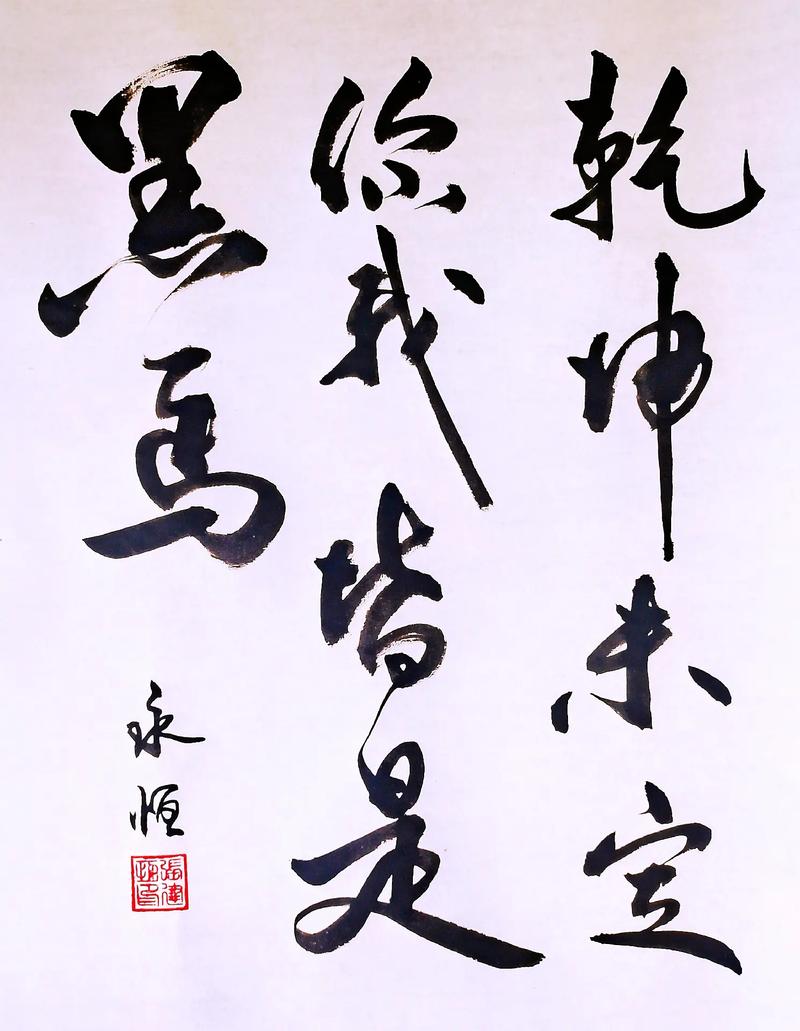 乾坤未定
你我皆是
黑馬
永恒